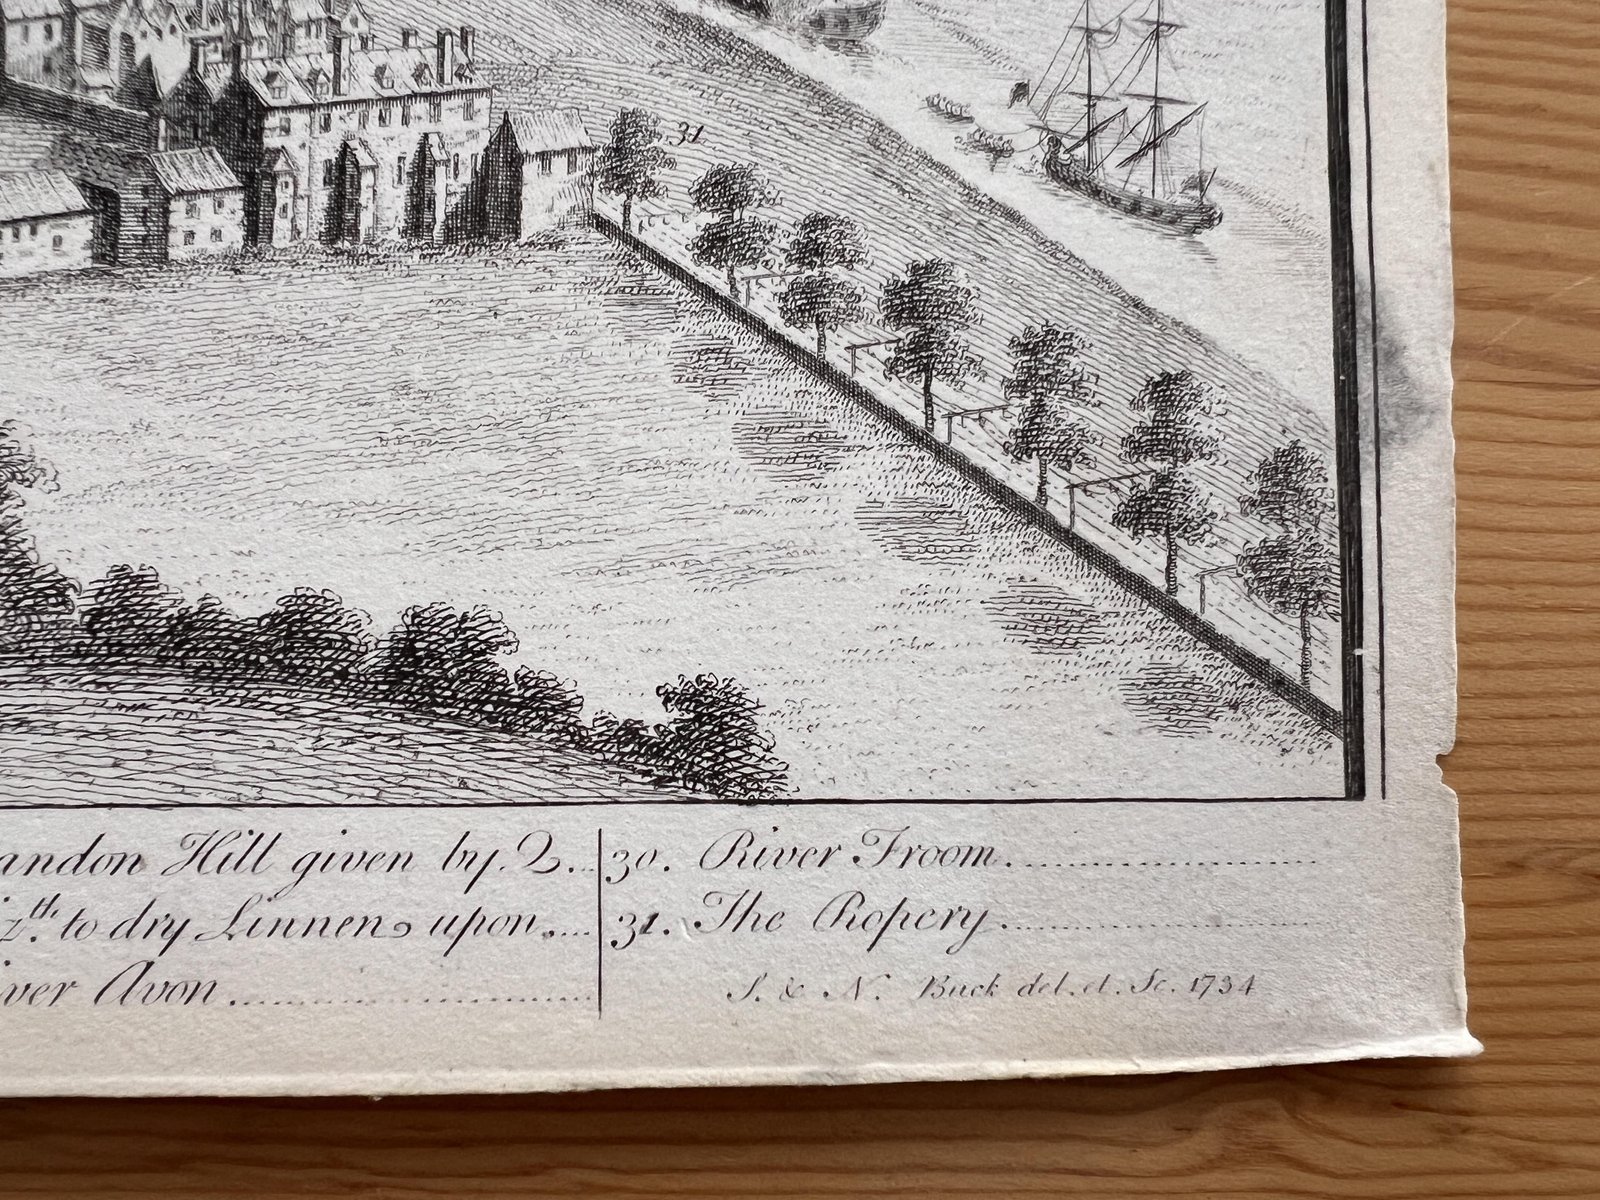 31
andon Hill given by Q...
th. to dry Linnens upon....
iver Avon..............
30. River Froom..............
31. The Ropery..............
S. & N. Buck del. et. Sc. 1734